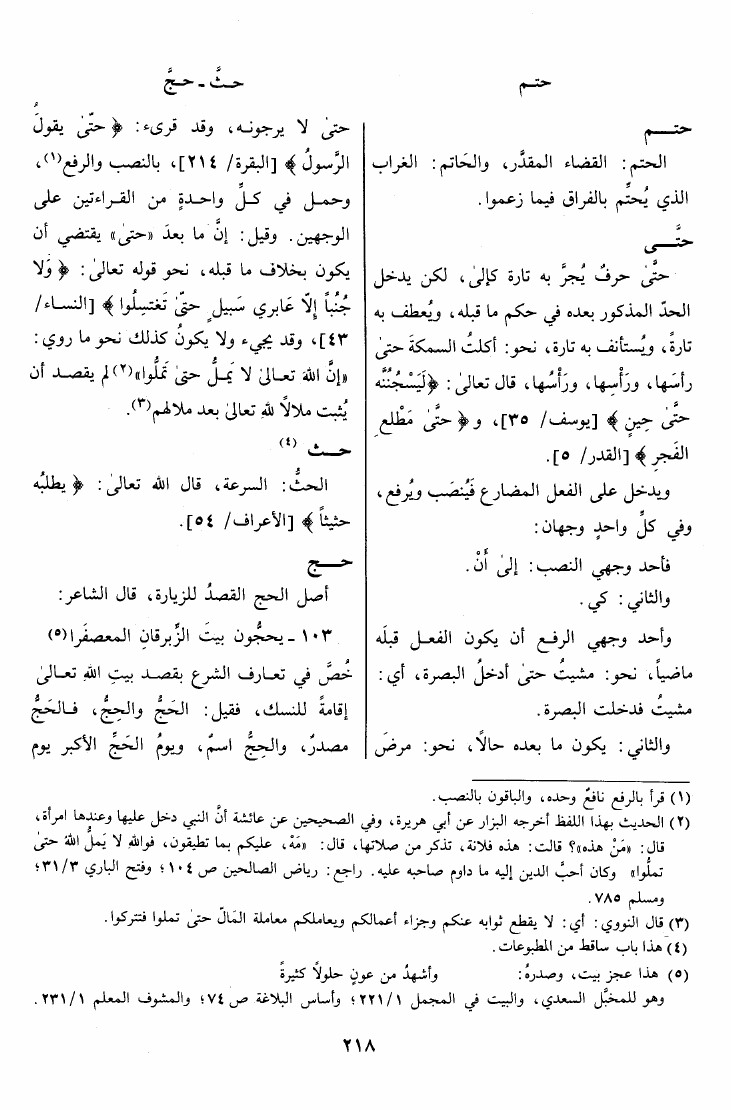 حتـم
حثَّ ـ حجَّ
حتـــم
الحتم: القضاء المقدَّر، والحَاتم: الغراب
الذي يُحتِّم بالفراق فيما زعموا.
حتَّــى
حتَّى حرفٌ يُجرَّ به تارة كإلى، لكن يدخل
الحدّ المذكور بعده في حكم ما قبله، ويُعطف به
تارةً، ويُستأنف به تارة، نحو: أكلتُ السمكةَ حتىٰ
رأسَها، ورَأْسِها، ورَأْسُها، قال تعالىٰ: ﴿لَيَسْجُنُنَّه
حتَّىٰ حِينٍ﴾ [يوسف/ ٣٥]، و﴿حتَّىٰ مَطْلعِ
الفَجرِ﴾ [القدر/ ٥].
ويدخل على الفعل المضارع فَيُنصَب ويُرفع،
وفي كلِّ واحدٍ وجهان:
فأحد وجهي النصب: إلىٰ أَنْ.
والثاني: كي.
وأحد وجهي الرفع أن يكون الفعـل قبلَه
ماضياً، نحو: مشيتُ حتىٰ أدخلُ البصرة، أي:
مشيتُ فدخلت البصرة.
والثاني: يكون ما بعده حالًا، نحو: مرضَ
حتىٰ لا يرجونـه، وقد قرىء: ﴿حتَّىٰ يقولُ
الرَّسولُ﴾ [البقرة/ ٢١٤]، بالنصب والرفع(١)،
وحمـل في كـلِّ واحـدةٍ من القـراءتين على
الوجهين. وقيل: إنَّ ما بعدَ «حتىٰ» يقتضي أن
يكون بخلاف ما قبله، نحو قوله تعالىٰ: ﴿وَلا
جُنُباً إلّا عَابري سَبيلٍ حتىّٰ تَغتسِلُوا﴾ [النساء/
٤٣]، وقد يجيء ولا يكونُ كذلك نحو ما روي:
«إنَّ اللهَ تعـالىٰ لا يَمـلُّ حتىٰ تَملُّوا»(٢) لم يقصـد أن
يُثبت ملالاً لله تعالىٰ بعد ملالهم(٣).
حــث (٤)
الحثُّ: السرعة، قال الله تعالىٰ: ﴿يطلبُه
حثيثاً﴾ [الأعراف/ ٥٤].
حـــج
أصل الحج القصدُ للزيارة، قال الشاعر:
١٠٣ ـ يحجُّون بيتَ الزِّبرقانِ المعصفَرا(٥)
خُصَّ في تعـارف الشرع بقصـد بيتِ اللهِ تعـالىٰ
إقامةً للنسك، فقيل: الحَجُّ والحِجُّ، فـالحَجُّ
مصدرٌ، والحِجُّ اسمٌ، ويومُ الحَجِّ الأكبر يوم
(١) قرأ بالرفع نافعٌ وحده، والباقون بالنصب.
(٢) الحديث بهذا اللفظ أخرجه البزار عن أبي هريرة، وفي الصحيحين عن عائشة أنَّ النبي دخل عليها وعندها امرأة،
قال: «مَنْ هذه»؟ قالت: هذه فلانة، تذكر من صلاتها، قال: «مَهْ، عليكم بما تطيقون، فواللهِ لا يَملُّ اللهُ حتىٰ
تملُّوا» وكان أحبَّ الدين إليه ما داوم صاحبه عليه. راجع: رياض الصالحين ص ١٠٤؛ وفتح الباري ٣١/٣؛
ومسلم ٧٨٥.
(٣) قال النووي: أي: لا يقطع ثوابه عنكم وجزاء أعمالكم ويعاملكم معاملة المالّ حتىٰ تملوا فتتركوا.
(٤) هذا باب ساقط من المطبوعات.
(٥) هذا عجز بيت، وصدرهُ: وأشهدُ من عوفٍ حلولاً كثيرةً
وهو للمخبَّل السعدي، والبيت في المجمل ٢٢١/١؛ وأساس البلاغة ص ٧٤؛ والمشوف المعلم ٢٣١/١.
٢١٨